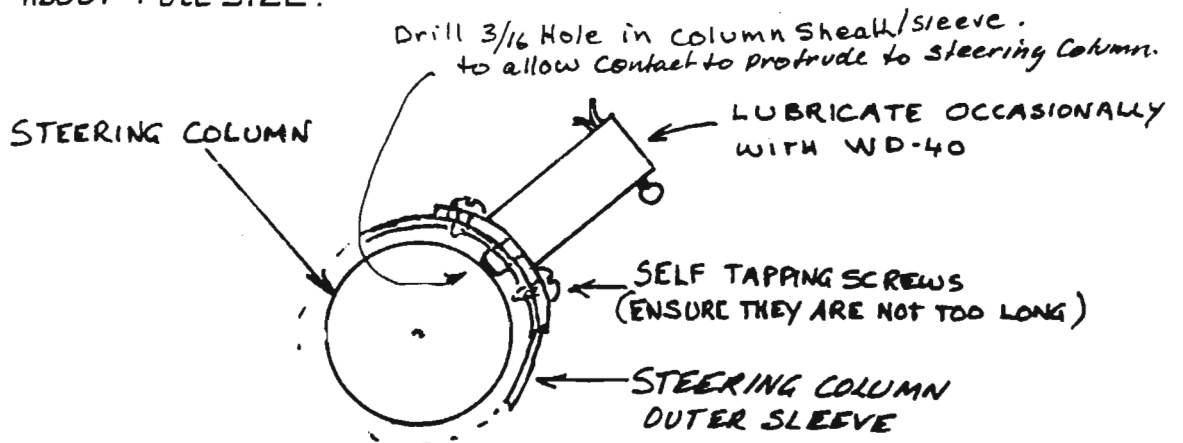 ABOUT FULL SIZE.
Drill 3/16 Hole in Column Sheath/Sleeve.
to allow Contact to Protrude to Steering Column.
STEERING COLUMN
LUBRICATE OCCASIONALLY
WITH WD-40
SELF TAPPING SCREWS
(ENSURE THEY ARE NOT TOO LONG)
STEERING COLUMN
OUTER SLEEVE